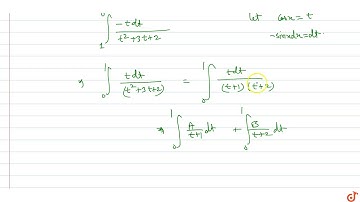 ∫₁⁰ -t dt / (t² + 3t + 2)    let cosx = t
-sinx dx = dt.
⇒ ∫₀¹ t dt / (t² + 3t + 2) = ∫₀¹ t dt / (t+1)(t+2)
⇒ ∫₀¹ A/(t+1) dt + ∫₀¹ B/(t+2) dt